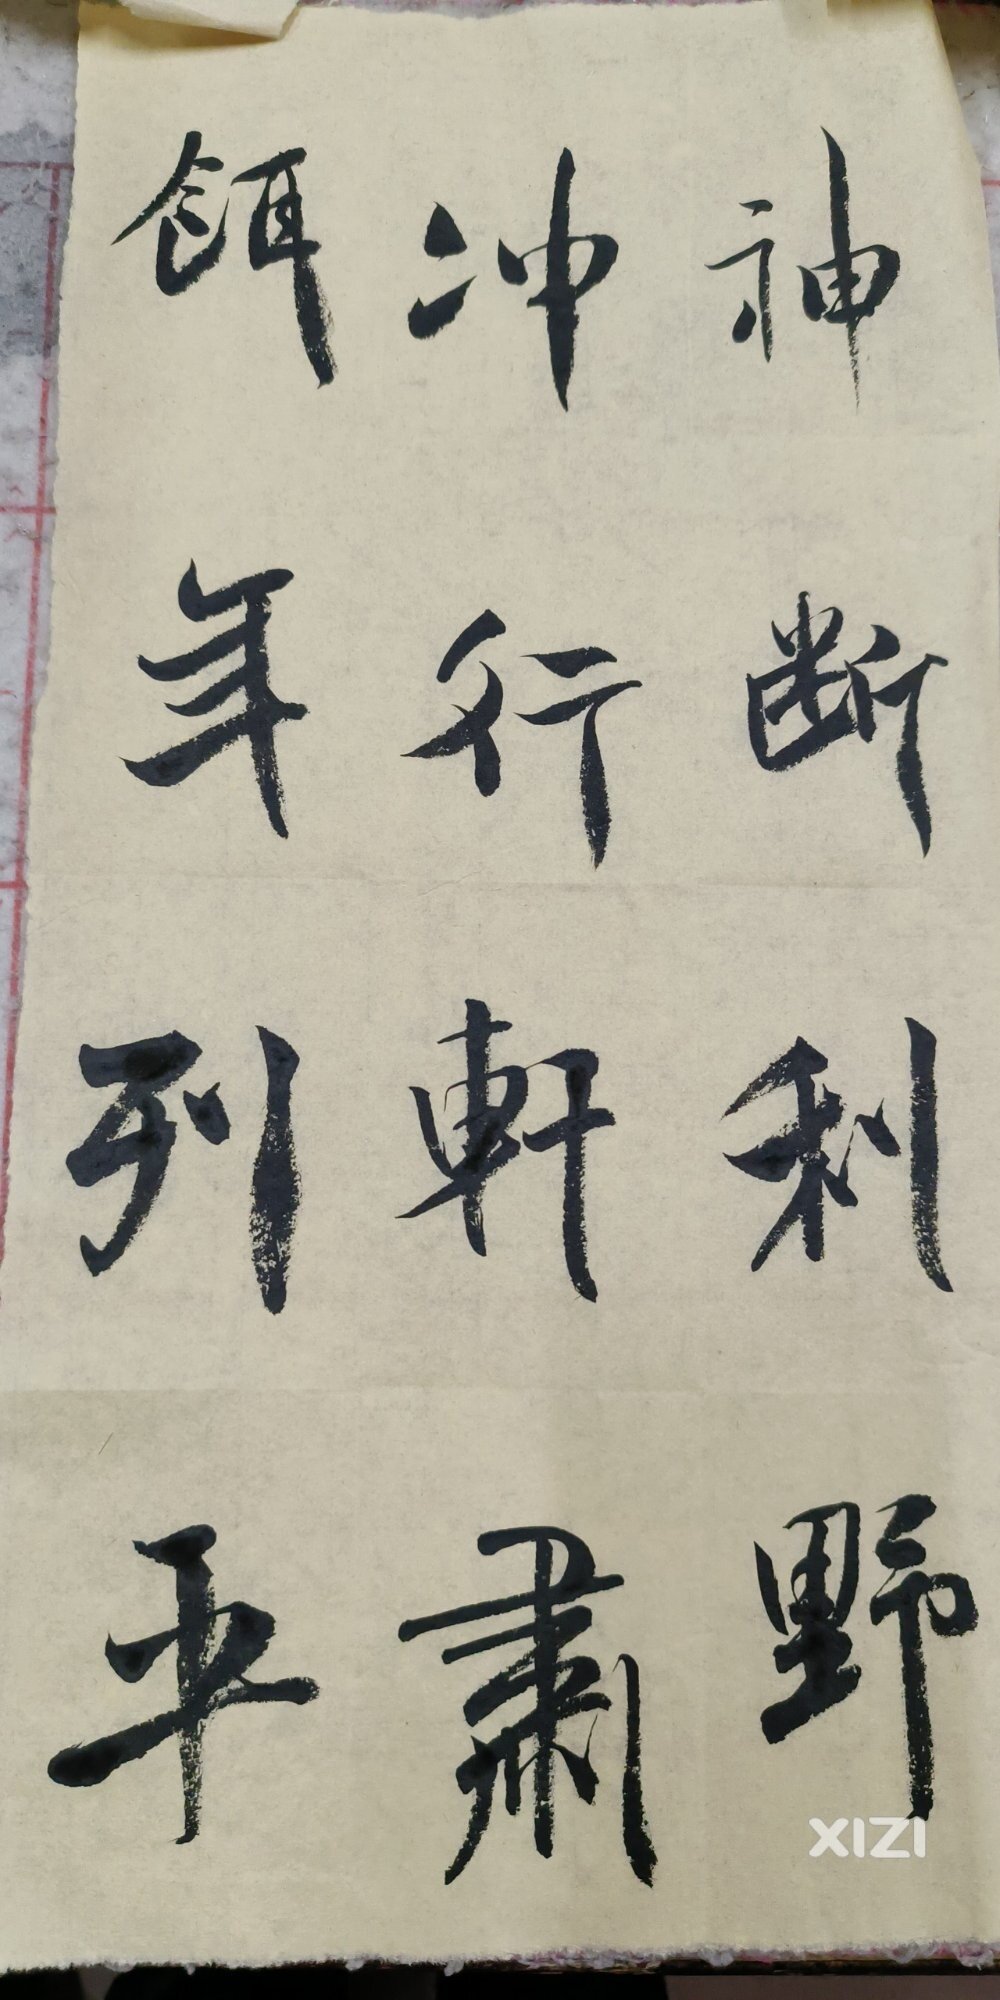 神断利野
冲行軒肃
餌年列平
XIZI